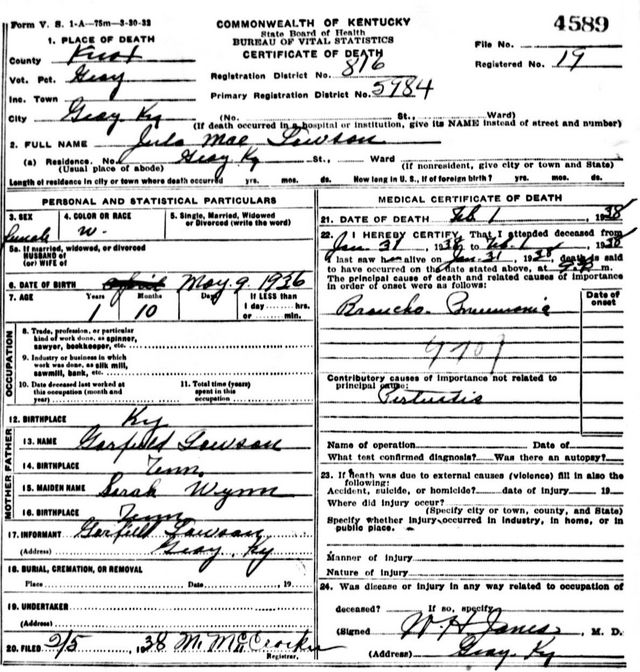 Form V. S. 1-A—75m—3-30-32
COMMONWEALTH OF KENTUCKY
State Board of Health
BUREAU OF VITAL STATISTICS
CERTIFICATE OF DEATH
4589
1. PLACE OF DEATH
County Knox
Vot. Pct. Gray
Inc. Town
City Gray Ky
Registration District No. 816
Primary Registration District No. 5984
File No.
Registered No. 19
(No. St., Ward)
(If death occurred in a hospital or institution, give its NAME instead of street and number)
2. FULL NAME Jula Mae Lawson
(a) Residence. No. Gray Ky St., Ward
(Usual place of abode) (If nonresident, give city or town and State)
Length of residence in city or town where death occurred yrs. mos. ds. How long in U. S., if of foreign birth? yrs. mos. ds.
PERSONAL AND STATISTICAL PARTICULARS
3. SEX
female
4. COLOR OR RACE
W.
5. Single, Married, Widowed
or Divorced (write the word)
5a. If married, widowed, or divorced
HUSBAND of
(or) WIFE of
6. DATE OF BIRTH April May 9 1936
7. AGE Years Months Days If LESS than
1 day hrs.
or min.
1 10
OCCUPATION
8. Trade, profession, or particular
kind of work done, as spinner,
sawyer, bookkeeper, etc.
9. Industry or business in which
work was done, as silk mill,
sawmill, bank, etc.
10. Date deceased last worked at
this occupation (month and
year)
11. Total time (years)
spent in this
occupation
12. BIRTHPLACE Ky
FATHER
13. NAME Garfield Lawson
14. BIRTHPLACE Tenn
MOTHER
15. MAIDEN NAME Sarah Wynn
16. BIRTHPLACE Tenn
17. INFORMANT Garfield Lawson
(Address) Gray, Ky
18. BURIAL, CREMATION, OR REMOVAL
Place Date , 19
19. UNDERTAKER
(Address)
20. FILED 2/5 1938 M. McCrocker
Registrar.
MEDICAL CERTIFICATE OF DEATH
21. DATE OF DEATH Feb 1 , 1938
22. I HEREBY CERTIFY, That I attended deceased from
Jan. 31 , 1938 to Feb. 1 , 1938
I last saw her alive on Jan. 31 , 1938 death is said
to have occurred on the date stated above, at m.
The principal cause of death and related causes of importance
in order of onset were as follows:
Date of
onset
Broncho. Pneumonia
Contributory causes of importance not related to
principal cause:
Pertustis
Name of operation Date of
What test confirmed diagnosis? Was there an autopsy?
23. If death was due to external causes (violence) fill in also the
following:
Accident, suicide, or homicide? date of injury , 19
Where did injury occur?
(Specify city or town, county, and State)
Specify whether injury occurred in industry, in home, or in
public place.
Manner of injury
Nature of injury
24. Was disease or injury in any way related to occupation of
deceased? If so, specify
(Signed W H Jones , M. D.
(Address) Gray, Ky